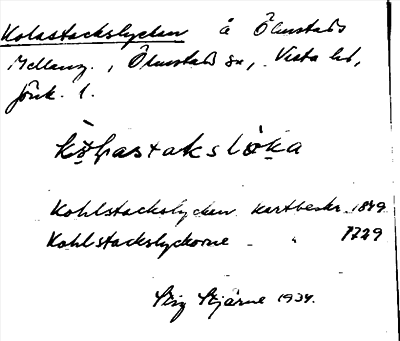 Kolastackslyckan å Ölmstads
Mellang., Ölmstads sn, Vista hd,
Jönk. l.
Kohlstackslyckan kartbeskr. 1849
Kohlstackslyckorne - " 1729
Stig Stjärne 1934.